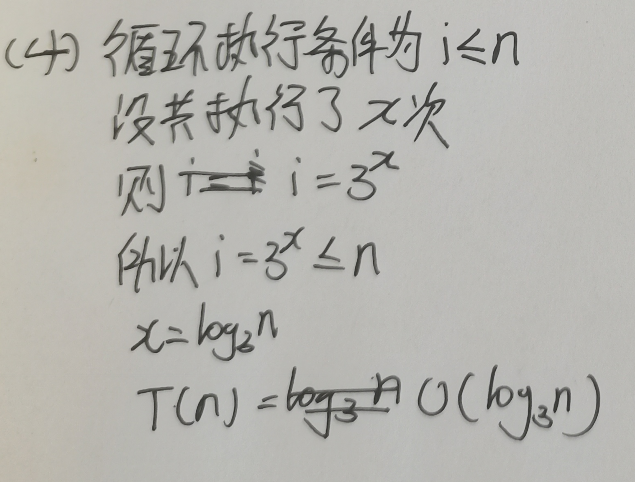 (4) 循环执行条件为 i≤n
设共执行了 x次
则 i = 3^x
所以 i = 3^x ≤ n
x = log₃n
T(n) = O(log₃n)